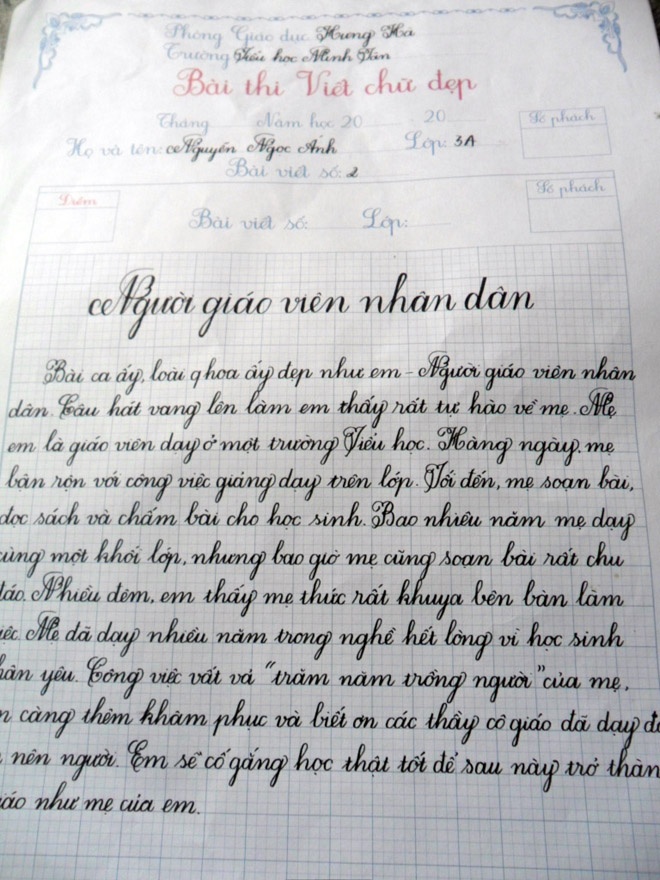 Phòng Giáo dục Hưng Hà
Trường Tiểu học Minh Tân
Bài thi Viết chữ đẹp
Tháng Năm học 20 20
Số phách
Họ và tên: Nguyễn Ngọc Ánh Lớp: 3A
Bài viết số: 2
Điểm
Số phách
Bài viết số: Lớp:
Người giáo viên nhân dân
Bài ca ấy, loài q hoa ấy đẹp như em - Người giáo viên nhân
dân. Câu hát vang lên làm em thấy rất tự hào về mẹ. Mẹ
em là giáo viên dạy ở một trường Tiểu học. Hàng ngày, mẹ
bận rộn với công việc giảng dạy trên lớp. Tối đến, mẹ soạn bài,
đọc sách và chấm bài cho học sinh. Bao nhiêu năm mẹ dạy
cùng một khối lớp, nhưng bao giờ mẹ cũng soạn bài rất chu
đáo. Nhiều đêm, em thấy mẹ thức rất khuya bên bàn làm
việc. Mẹ đã dạy nhiều năm trong nghề hết lòng vì học sinh
thân yêu. Công việc vất vả "trăm năm trồng người" của mẹ,
càng thêm khâm phục và biết ơn các thầy cô giáo đã dạy
nên người. Em sẽ cố gắng học thật tốt để sau này trở
như mẹ của em.